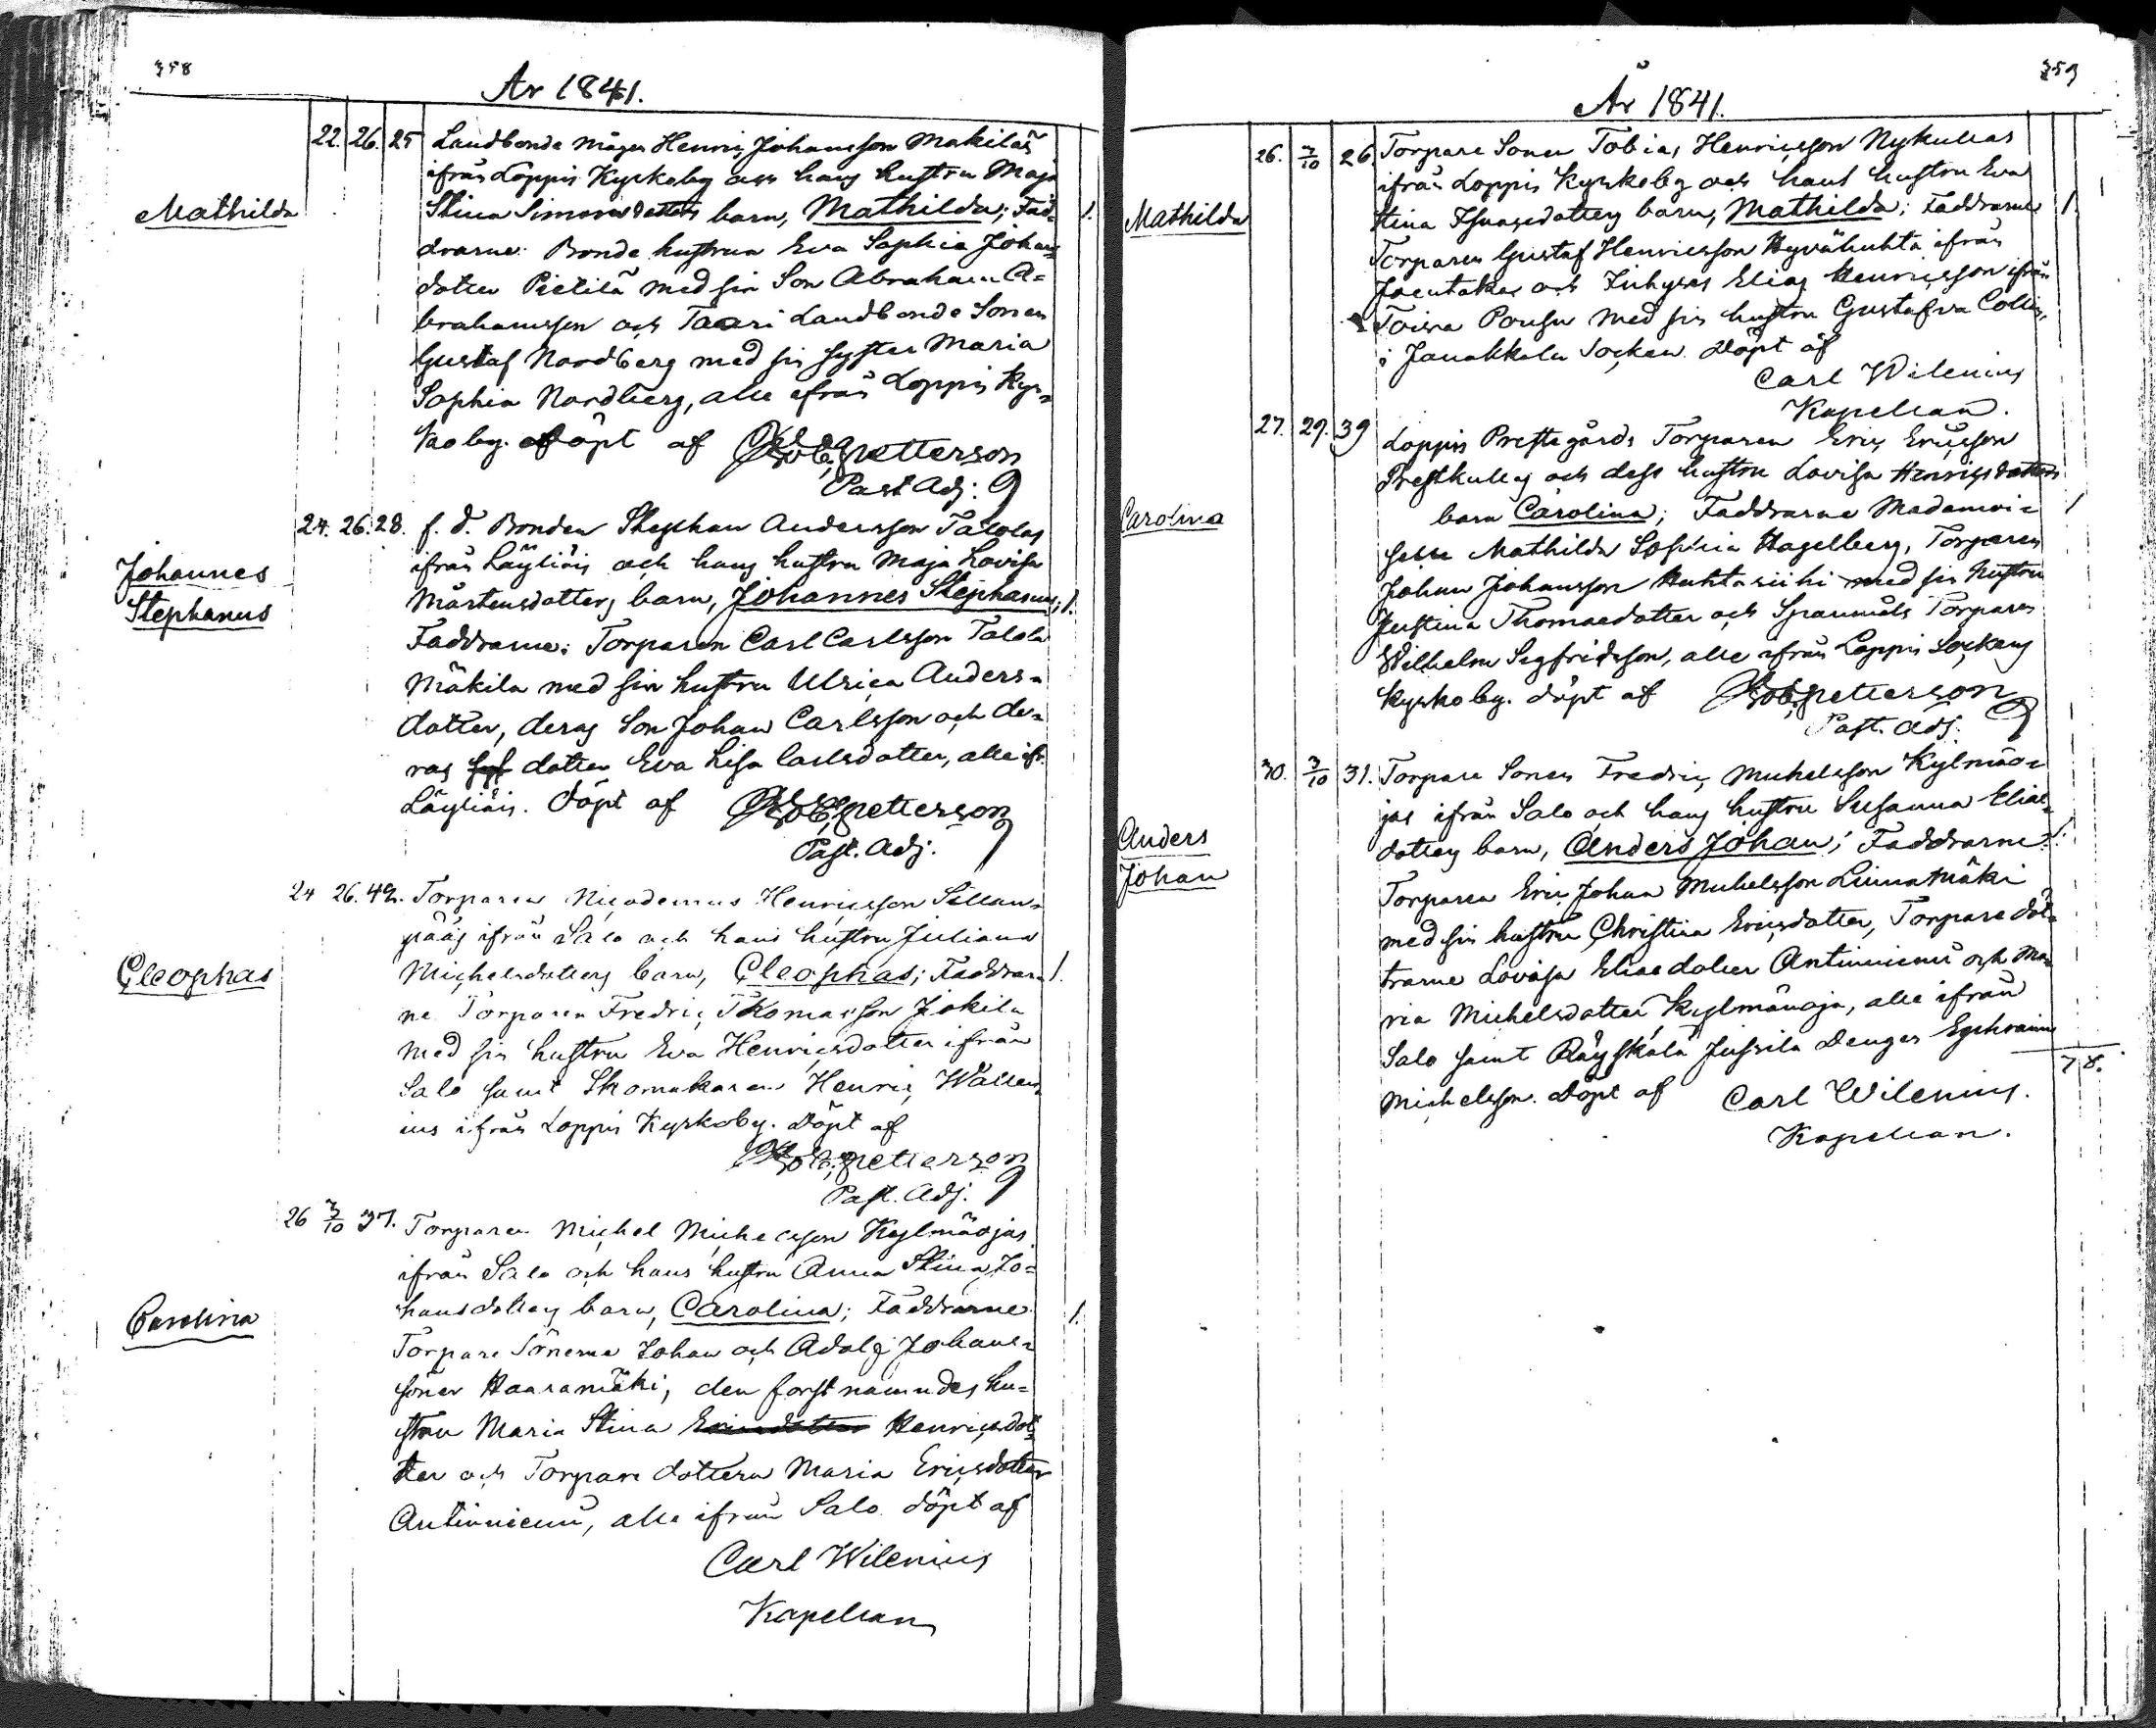 358
År 1841.
22. 26. 25 Landbonde mågen Henric Johansson Makiläs
ifrån Loppis Kyrkoby och hans hustru Maja
Mathilda
Stina Simonsdotters barn, Mathilda; Fad- 1.
drarne: Bonde hustrun Eva Sophia Johans
dotter Pietilä med sin Son Abraham A=
brahamsson och Taari Landbonde Sonen
Gustaf Nordberg med sin syster Maria
Sophia Nordberg, alle ifrån Loppis Kyr=
koby. döpt af Petterson
Past. Adj:
24. 26. 28. f. d. Bonden Stephan Andersson Talolas
ifrån Läyliäis och hans hustru Maja Lovisa
Johannes
Stephanus
Mårtensdotters barn, Johannes Stephanus; 1.
Faddrarne: Torparen Carl Carlsson Talola
Mäkilä med sin hustru Ulrica Anders=
dotter, deras Son Johan Carlsson och de=
ras dotter Eva Lisa Carlsdotter, alle ifr.
Läyliäis. döpt af Petterson
Past. Adj.
24 26. 42. Torparen Nicodemus Henricsson Sillan=
pääs ifrån Salo och hans hustru Juliana
Cleophas
Michelsdotters barn, Cleophas; Faddrar 1.
ne Torparen Fredric Thomasson Jokila
med sin hustru Eva Henricsdotter ifrån
Salo samt Skomakaren Henric Wallen
ius ifrån Loppis Kyrkoby. Döpt af
Petterson
Past. Adj.
26 3/10 37. Torparen Michel Michelsson Kylmäojas
ifrån Salo och hans hustru Anna Stina Jo=
Carolina
hansdotters barn, Carolina; Faddrarne 1.
Torpare Sönerne Johan och Adolf Johans=
söner Haaramäki, den förstnämndes hu=
stru Maria Stina Ericsdotter Henricsdot
ter och Torpare dottern Maria Ericsdotter
Antinniemi, alla ifrån Salo. döpt af
Carl Wilenius
Kapellan
359
År 1841.
26. 3/10 26. Torpare Sonen Tobias Henricsson Nykullas
ifrån Loppis Kyrkoby och hans hustru Eva
Mathilda
Stina barn, Mathilda; Faddrarne 1.
Torparen Gustaf Henricsson Hyvähuhta ifrån
Joentaka och Inhyses Elias Henricsson ifrån
Toivia Pousu med sin hustru Gustafva Collin,
i Janakkala Socken. Döpt af
Carl Wilenius
Kapellan.
27. 29. 39 Loppis Prestegårds Torparen Eric Ericsson
Prestkulla och dess hustru Lovisa Henricsdotters
Carolina
barn Carolina; Faddrarne Mademoi= 1
selle Mathilda Sophia Hagelberg, Torparen
Johan Johansson Huhtariihi med sin hustru
Justina Thomasdotter och Spannmåls Torparen
Wilhelm Segfridsson, alle ifrån Loppis Sockens
Kyrkoby. döpt af Petterson
Past. Adj.
30. 3/10 31. Torpare Sonen Fredric Michelsson Kylmäo=
jas ifrån Salo och hans hustru Susanna Elias=
Anders
Johan
dotters barn, Anders Johan; Faddrarne: 1.
Torparen Eric Johan Michelsson Linnamäki
med sin hustru Christina Ericsdotter, Torpare döt=
trarne Lovisa Eliaedotter Antinniemi och Ma=
ria Michelsdotter Kylmänoja, alle ifrån
Salo samt Räyskälä Jussila Drengen Ephraim
78.
Michelsson. Döpt af Carl Wilenius.
Kapellan.